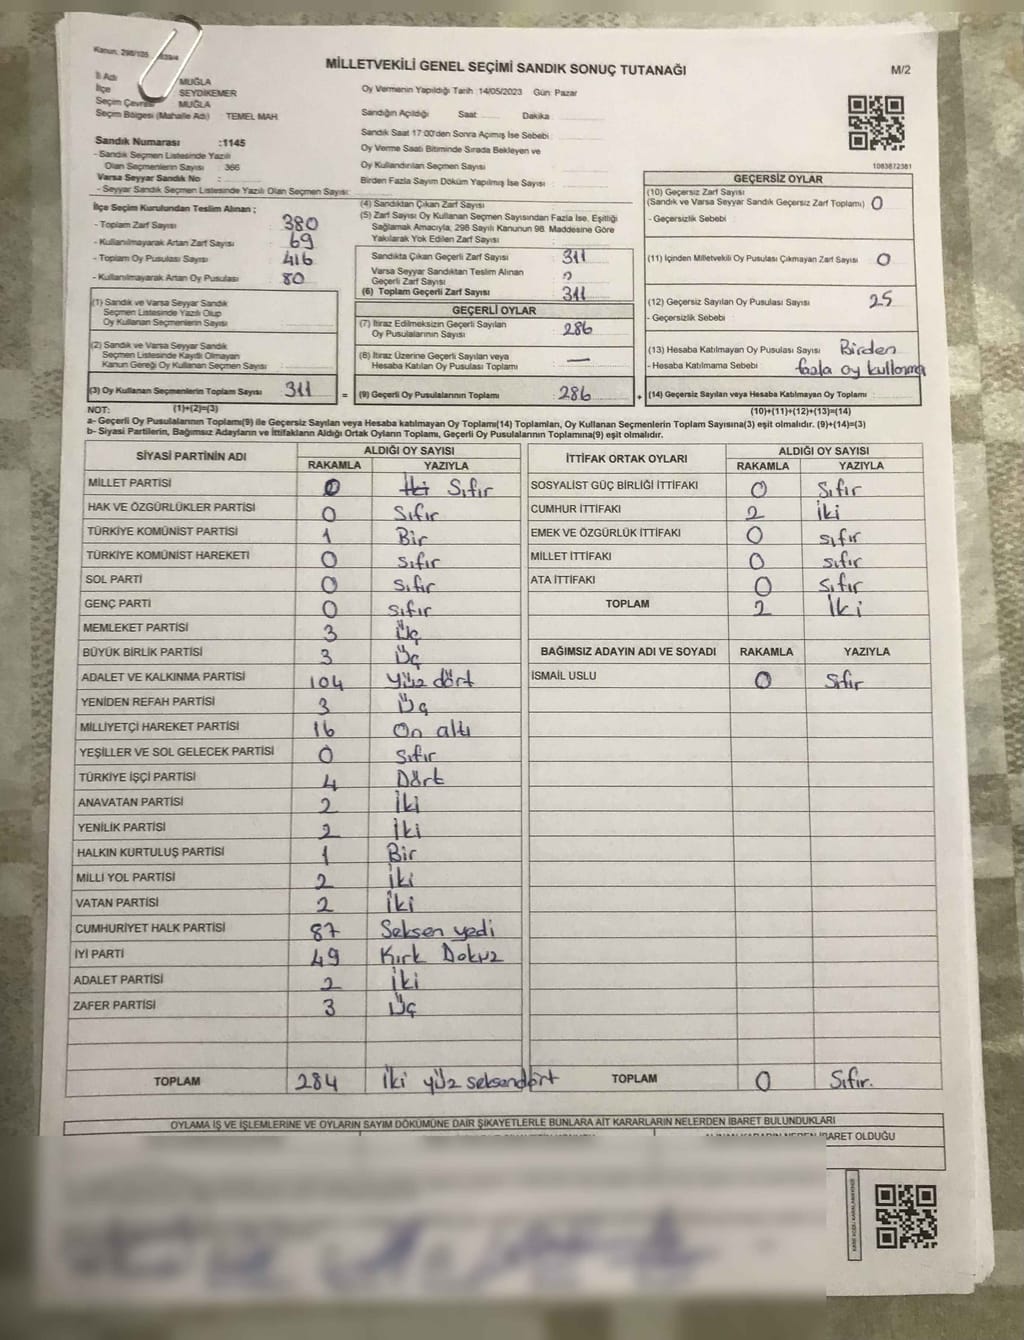 Kanun: 298/105
MİLLETVEKİLİ GENEL SEÇİMİ SANDIK SONUÇ TUTANAĞI
M/2
İl Adı MUĞLA
İlçe SEYDİKEMER
Seçim Çevresi MUĞLA
Seçim Bölgesi (Mahalle Adı) TEMEL MAH.
Oy Vermenin Yapıldığı Tarih :14/05/2023 Gün: Pazar
Sandığın Açıldığı Saat Dakika
Sandık Saat 17:00'den Sonra Açımış İse Sebebi :
Oy Verme Saati Bitiminde Sırada Bekleyen ve
Oy Kullandırılan Seçmen Sayısı :
Birden Fazla Sayım Döküm Yapılmış İse Sayısı :
1083872381
Sandık Numarası :1145
- Sandık Seçmen Listesinde Yazılı
Olan Seçmenlerin Sayısı : 366
Varsa Seyyar Sandık No :
- Seyyar Sandık Seçmen Listesinde Yazılı Olan Seçmen Sayısı:
İlçe Seçim Kurulundan Teslim Alınan ;
- Toplam Zarf Sayısı : 380
- Kullanılmayarak Artan Zarf Sayısı : 69
- Toplam Oy Pusulası Sayısı : 416
- Kullanılmayarak Artan Oy Pusulası : 80
(1) Sandık ve Varsa Seyyar Sandık
Seçmen Listesinde Yazılı Olup
Oy Kullanan Seçmenlerin Sayısı :
(2) Sandık ve Varsa Seyyar Sandık
Seçmen Listesinde Kaydı Olmayan
Kanun Gereği Oy Kullanan Seçmen Sayısı :
(3) Oy Kullanan Seçmenlerin Toplam Sayısı : 311
(4) Sandıktan Çıkan Zarf Sayısı :
(5) Zarf Sayısı Oy Kullanan Seçmen Sayısından Fazla İse, Eşitliği
Sağlamak Amacıyla, 298 Sayılı Kanunun 98. Maddesine Göre
Yakılarak Yok Edilen Zarf Sayısı :
Sandıkta Çıkan Geçerli Zarf Sayısı : 311
Varsa Seyyar Sandıktan Teslim Alınan
Geçerli Zarf Sayısı :
(6) Toplam Geçerli Zarf Sayısı : 311
GEÇERLİ OYLAR
(7) İtiraz Edilmeksizin Geçerli Sayılan
Oy Pusulalarının Sayısı : 286
(8) İtiraz Üzerine Geçerli Sayılan veya
Hesaba Katılan Oy Pusulası Toplamı : —
= (9) Geçerli Oy Pusulalarının Toplamı : 286
GEÇERSİZ OYLAR
(10) Geçersiz Zarf Sayısı
(Sandık ve Varsa Seyyar Sandık Geçersiz Zarf Toplamı) : 0
- Geçersizlik Sebebi :
(11) İçinden Milletvekili Oy Pusulası Çıkmayan Zarf Sayısı : 0
(12) Geçersiz Sayılan Oy Pusulası Sayısı : 25
- Geçersizlik Sebebi :
(13) Hesaba Katılmayan Oy Pusulası Sayısı : Birden
- Hesaba Katılmama Sebebi : fazla oy kullanma
+ (14) Geçersiz Sayılan veya Hesaba Katılmayan Oy Toplamı :
NOT: (1)+(2)=(3) (10)+(11)+(12)+(13)=(14)
a- Geçerli Oy Pusulalarının Toplamı(9) ile Geçersiz Sayılan veya Hesaba katılmayan Oy Toplam(14) Toplamları, Oy Kullanan Seçmenlerin Toplam Sayısına(3) eşit olmalıdır. (9)+(14)=(3)
b- Siyasi Partilerin, Bağımsız Adayların ve İttifakların Aldığı Ortak Oyların Toplamı, Geçerli Oy Pusulalarının Toplamına(9) eşit olmalıdır.
SİYASİ PARTİNİN ADI ALDIĞI OY SAYISI
RAKAMLA YAZIYLA
MİLLET PARTİSİ 0 İki Sıfır
HAK VE ÖZGÜRLÜKLER PARTİSİ 0 Sıfır
TÜRKİYE KOMÜNİST PARTİSİ 1 Bir
TÜRKİYE KOMÜNİST HAREKETİ 0 sıfır
SOL PARTİ 0 sıfır
GENÇ PARTİ 0 sıfır
MEMLEKET PARTİSİ 3 Üç
BÜYÜK BİRLİK PARTİSİ 3 Üç
ADALET VE KALKINMA PARTİSİ 104 Yüz dört
YENİDEN REFAH PARTİSİ 3 Üç
MİLLİYETÇİ HAREKET PARTİSİ 16 On altı
YEŞİLLER VE SOL GELECEK PARTİSİ 0 Sıfır
TÜRKİYE İŞÇİ PARTİSİ 4 Dört
ANAVATAN PARTİSİ 2 İki
YENİLİK PARTİSİ 2 İki
HALKIN KURTULUŞ PARTİSİ 1 Bir
MİLLİ YOL PARTİSİ 2 İki
VATAN PARTİSİ 2 İki
CUMHURİYET HALK PARTİSİ 87 Seksen yedi
İYİ PARTİ 49 Kırk Dokuz
ADALET PARTİSİ 2 İki
ZAFER PARTİSİ 3 Üç
TOPLAM 284 İki yüz seksendört
İTTİFAK ORTAK OYLARI ALDIĞI OY SAYISI
RAKAMLA YAZIYLA
SOSYALİST GÜÇ BİRLİĞİ İTTİFAKI 0 Sıfır
CUMHUR İTTİFAKI 2 İki
EMEK VE ÖZGÜRLÜK İTTİFAKI 0 sıfır
MİLLET İTTİFAKI 0 sıfır
ATA İTTİFAKI 0 Sıfır
TOPLAM 2 İki
BAĞIMSIZ ADAYIN ADI VE SOYADI RAKAMLA YAZIYLA
İSMAİL USLU 0 Sıfır
TOPLAM 0 Sıfır.
OYLAMA İŞ VE İŞLEMLERİNE VE OYLARIN SAYIM DÖKÜMÜNE DAİR ŞİKAYETLERLE BUNLARA AİT KARARLARIN NELERDEN İBARET BULUNDUKLARI
İBARET OLDUĞU